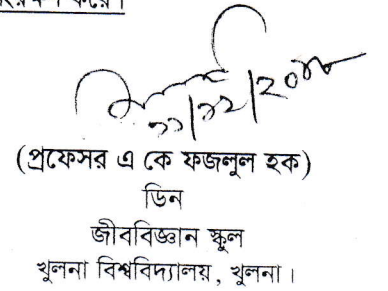 (প্রফেসর এ কে ফজলুল হক)
ডিন
জীববিজ্ঞান স্কুল
খুলনা বিশ্ববিদ্যালয়, খুলনা।